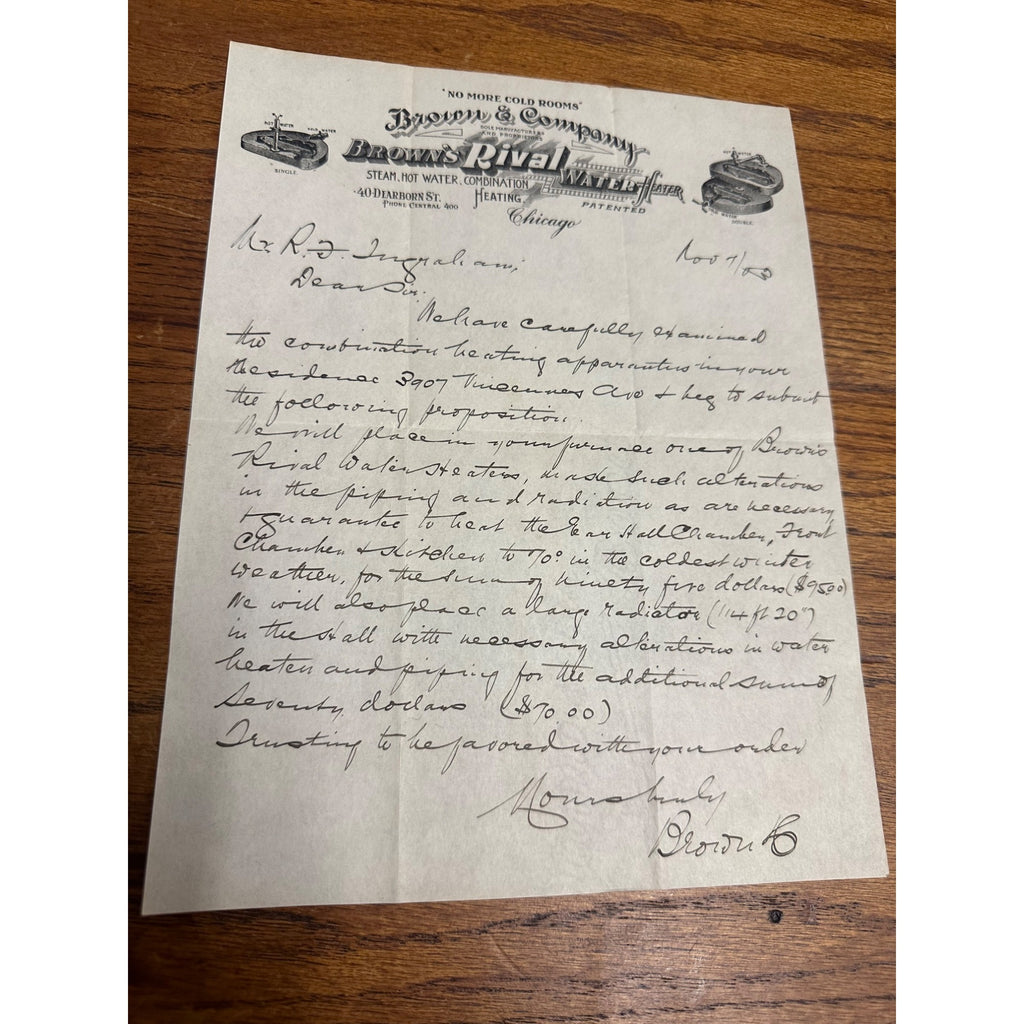 "NO MORE COLD ROOMS"
Brown & Company
SOLE MANUFACTURERS
AND PROPRIETORS
BROWN'S Rival WATER HEATER
PATENTED
STEAM, HOT WATER, COMBINATION
HEATING
40 DEARBORN ST.
PHONE CENTRAL 400
Chicago
HOT WATER COLD WATER
SINGLE.
HOT WATER
COLD WATER
DOUBLE.
Nov 7/
Mr. R. F. Ingraham;
Dear Sir:
We have carefully examined
the combination heating apparatus in your
Residence 3907 Vincennes Ave & beg to submit
the following proposition.
We will place in your furnace one of Brown's
Rival Water Heaters, make such alterations
in the piping and radiation as are necessary
& guarantee to heat the Rear Hall Chamber, Front
Chamber & Kitchen to 70° in the coldest winter
weather, for the sum of Ninety five dollars ($95.00)
We will also place a large radiator (114 ft 20")
in the Hall with necessary alterations in water
heater and piping for the additional sum of
Seventy dollars ($70.00)
Trusting to be favored with your order
Yours truly
Brown & Co